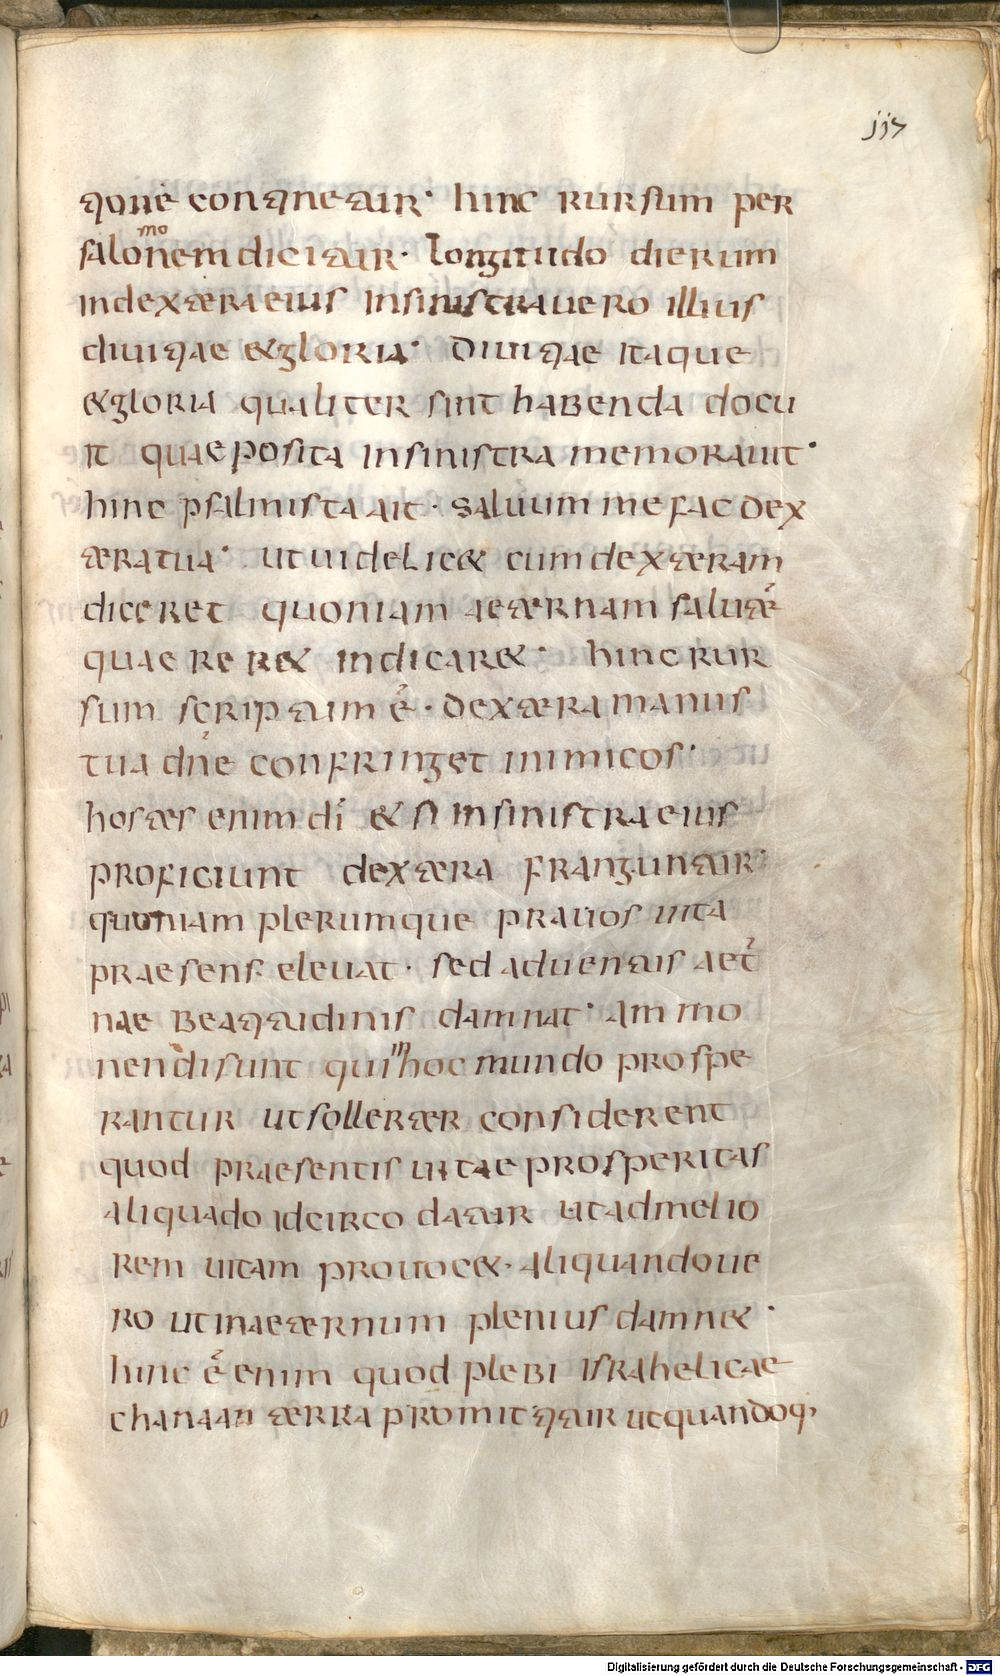 117
tione continetur· hinc rursum per
salomonem dicitur· Longitudo dierum
in dextera eius In sinistra uero illius
diuitiae & gloria· Diuitiae itaque
& gloria qualiter sint habenda docu
it quae posita in sinistra memorauit·
hinc psalmista ait· saluum me fac dex
tera tua· ut uidelic& cum dexteram
diceret quoniam aeternam salutē
quaerer& indicar&· hinc rur
sum scriptum ē· dextera manus
tua dn̄e confringet inimicos·
hostes enim dī & si in sinistra eius
proficiunt dextera franguntur·
quoniam plerumque prauos uita
praesens eleuat· sed aduentus aet̄
nae beatitudinis damnat· Ammo
nendi sunt qui in hoc mundo prospe
rantur ut sollerter considerent
quod praesentis uitae prosperitas
aliquādo idcirco datur ut ad melio
rem uitam prouoc&· aliquando ue
ro ut in aeternum plenius damn&·
hinc ē enim quod plebi israhelicae
chanaan terra promittitur ut quandoq;
Digitalisierung gefördert durch die Deutsche Forschungsgemeinschaft - DFG